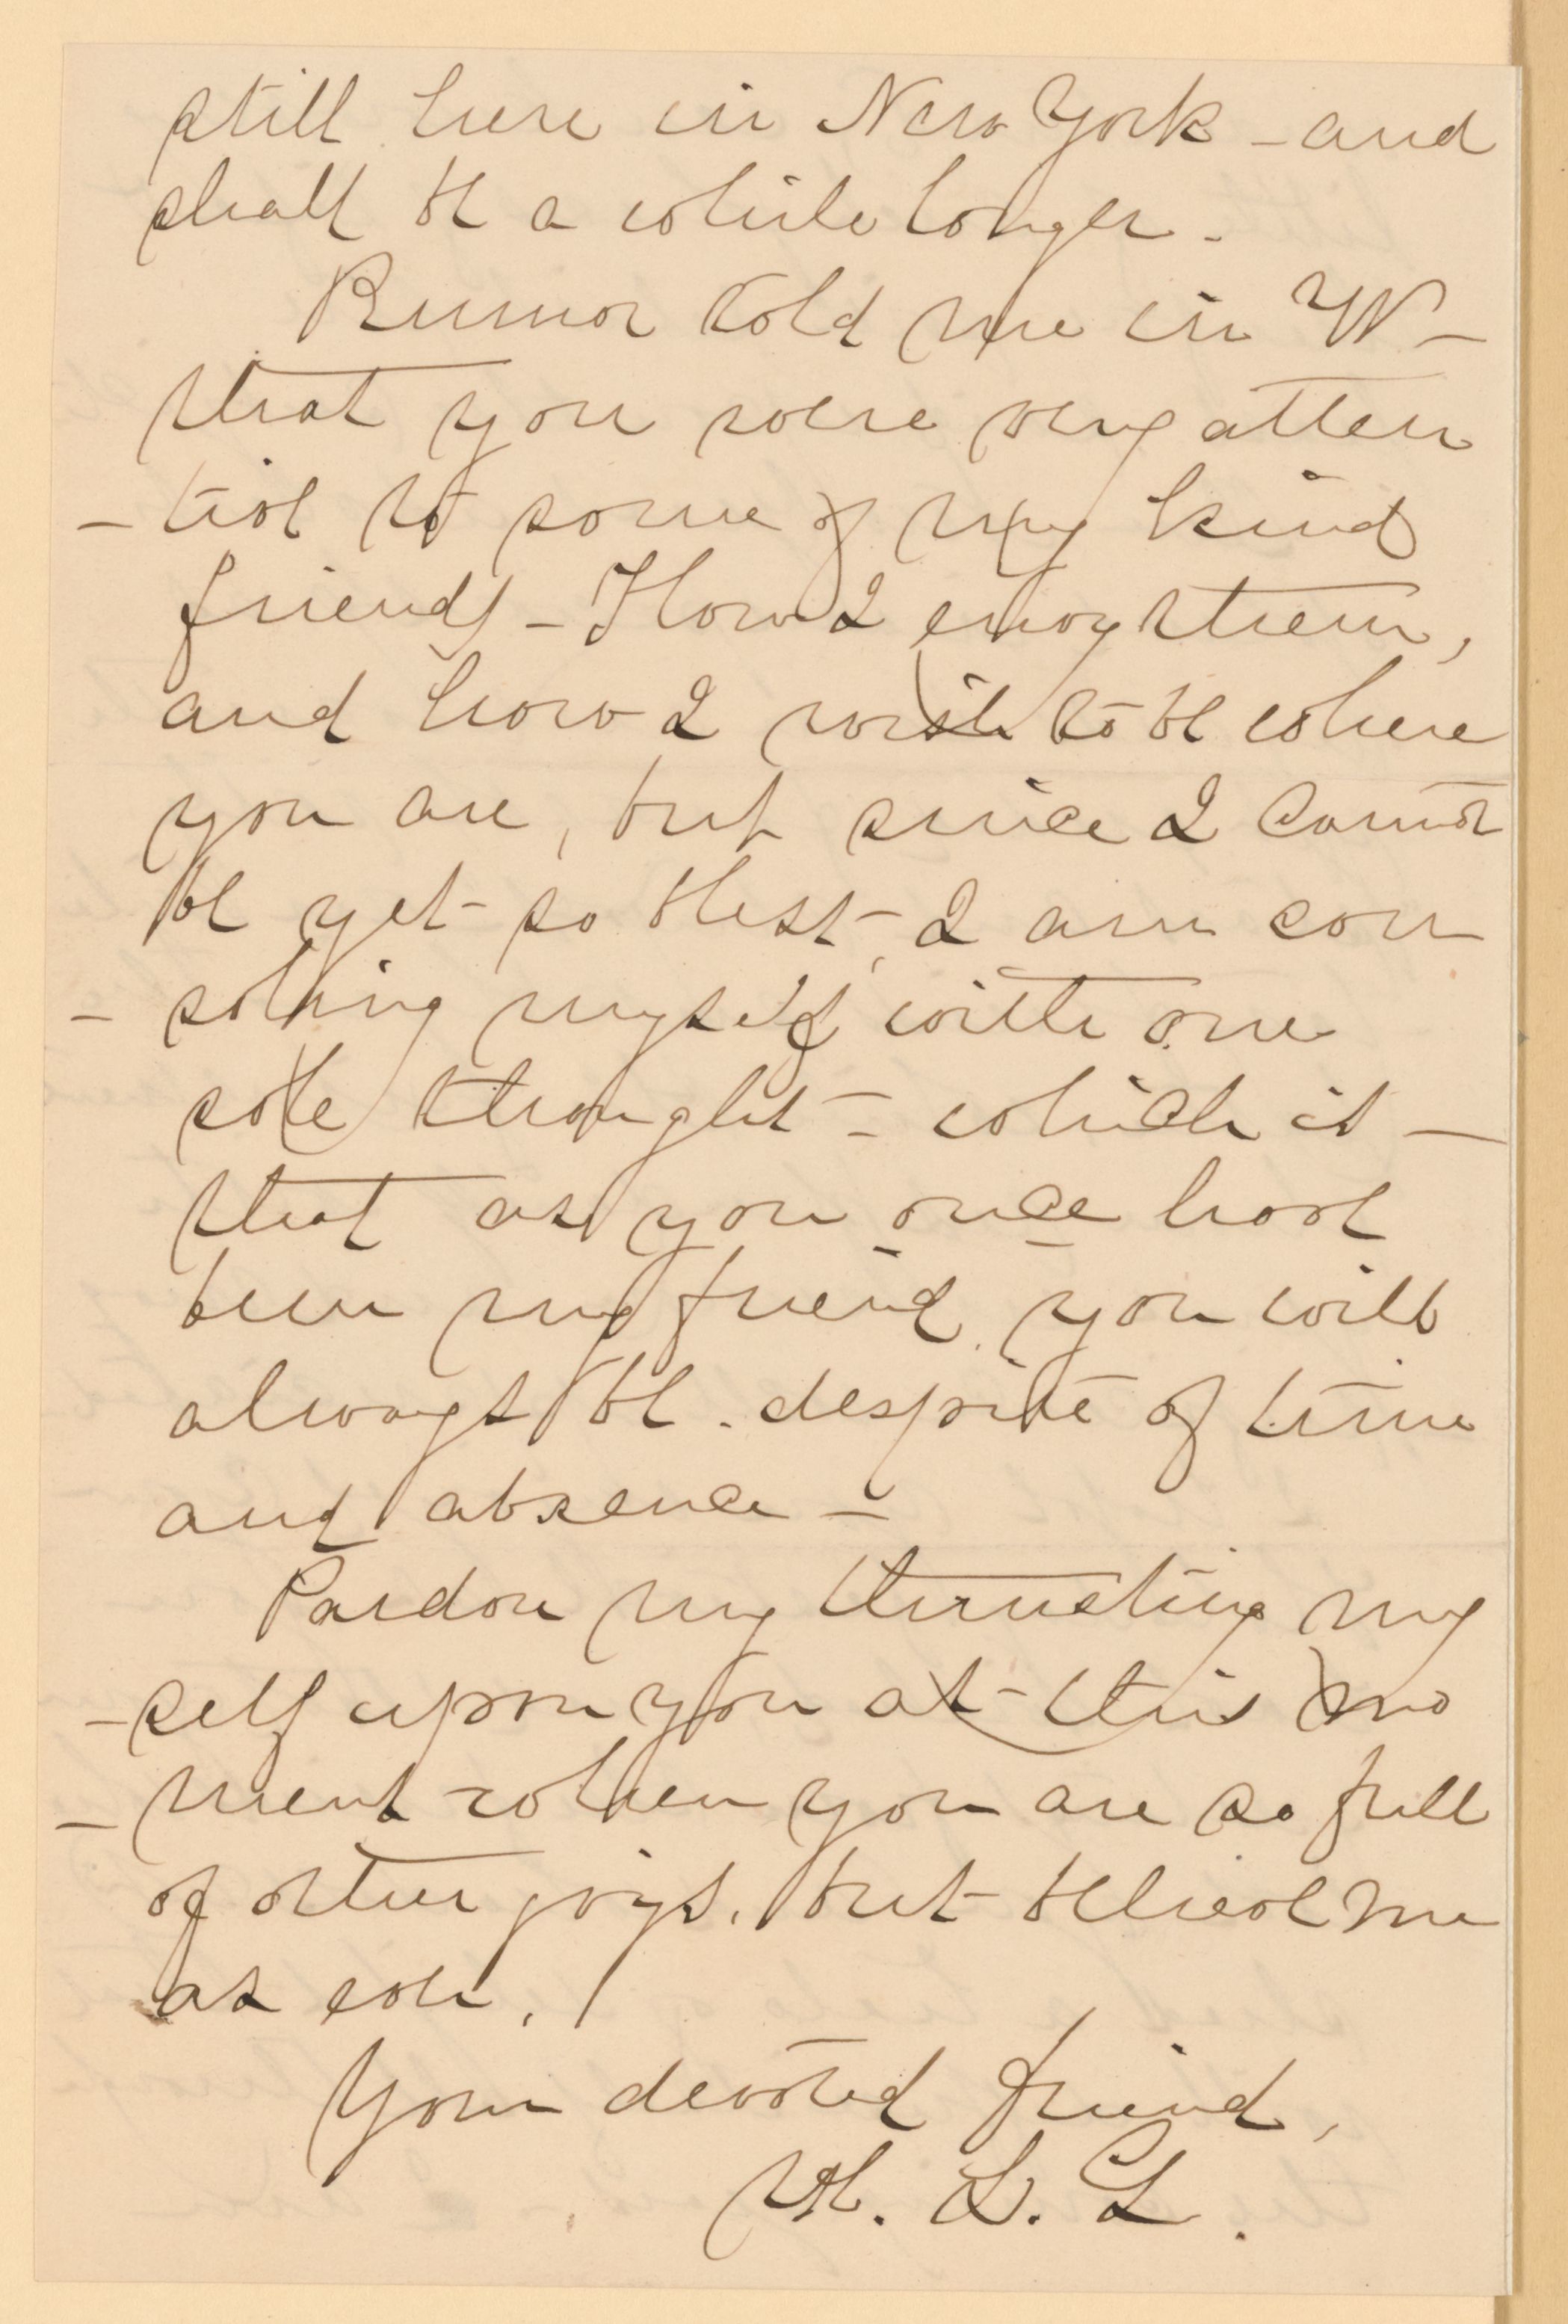 still here in New York – and
shall be a while longer.
Rumor told me in W –
that you were very atten
- tive to some of my kind
friends – How I enjoy them,
and how I wish to be where
you are, but since I cannot
be yet so blest, I am con
- soling myself with one
sole thought – which is –
that as you once have
been my friend, you will
always be. despite of time
and absence –
Pardon my thrusting my
- self upon you at this mo
- ment when you are so full
of other joys, but believe me
as ever,
Your devoted friend,
L. L.